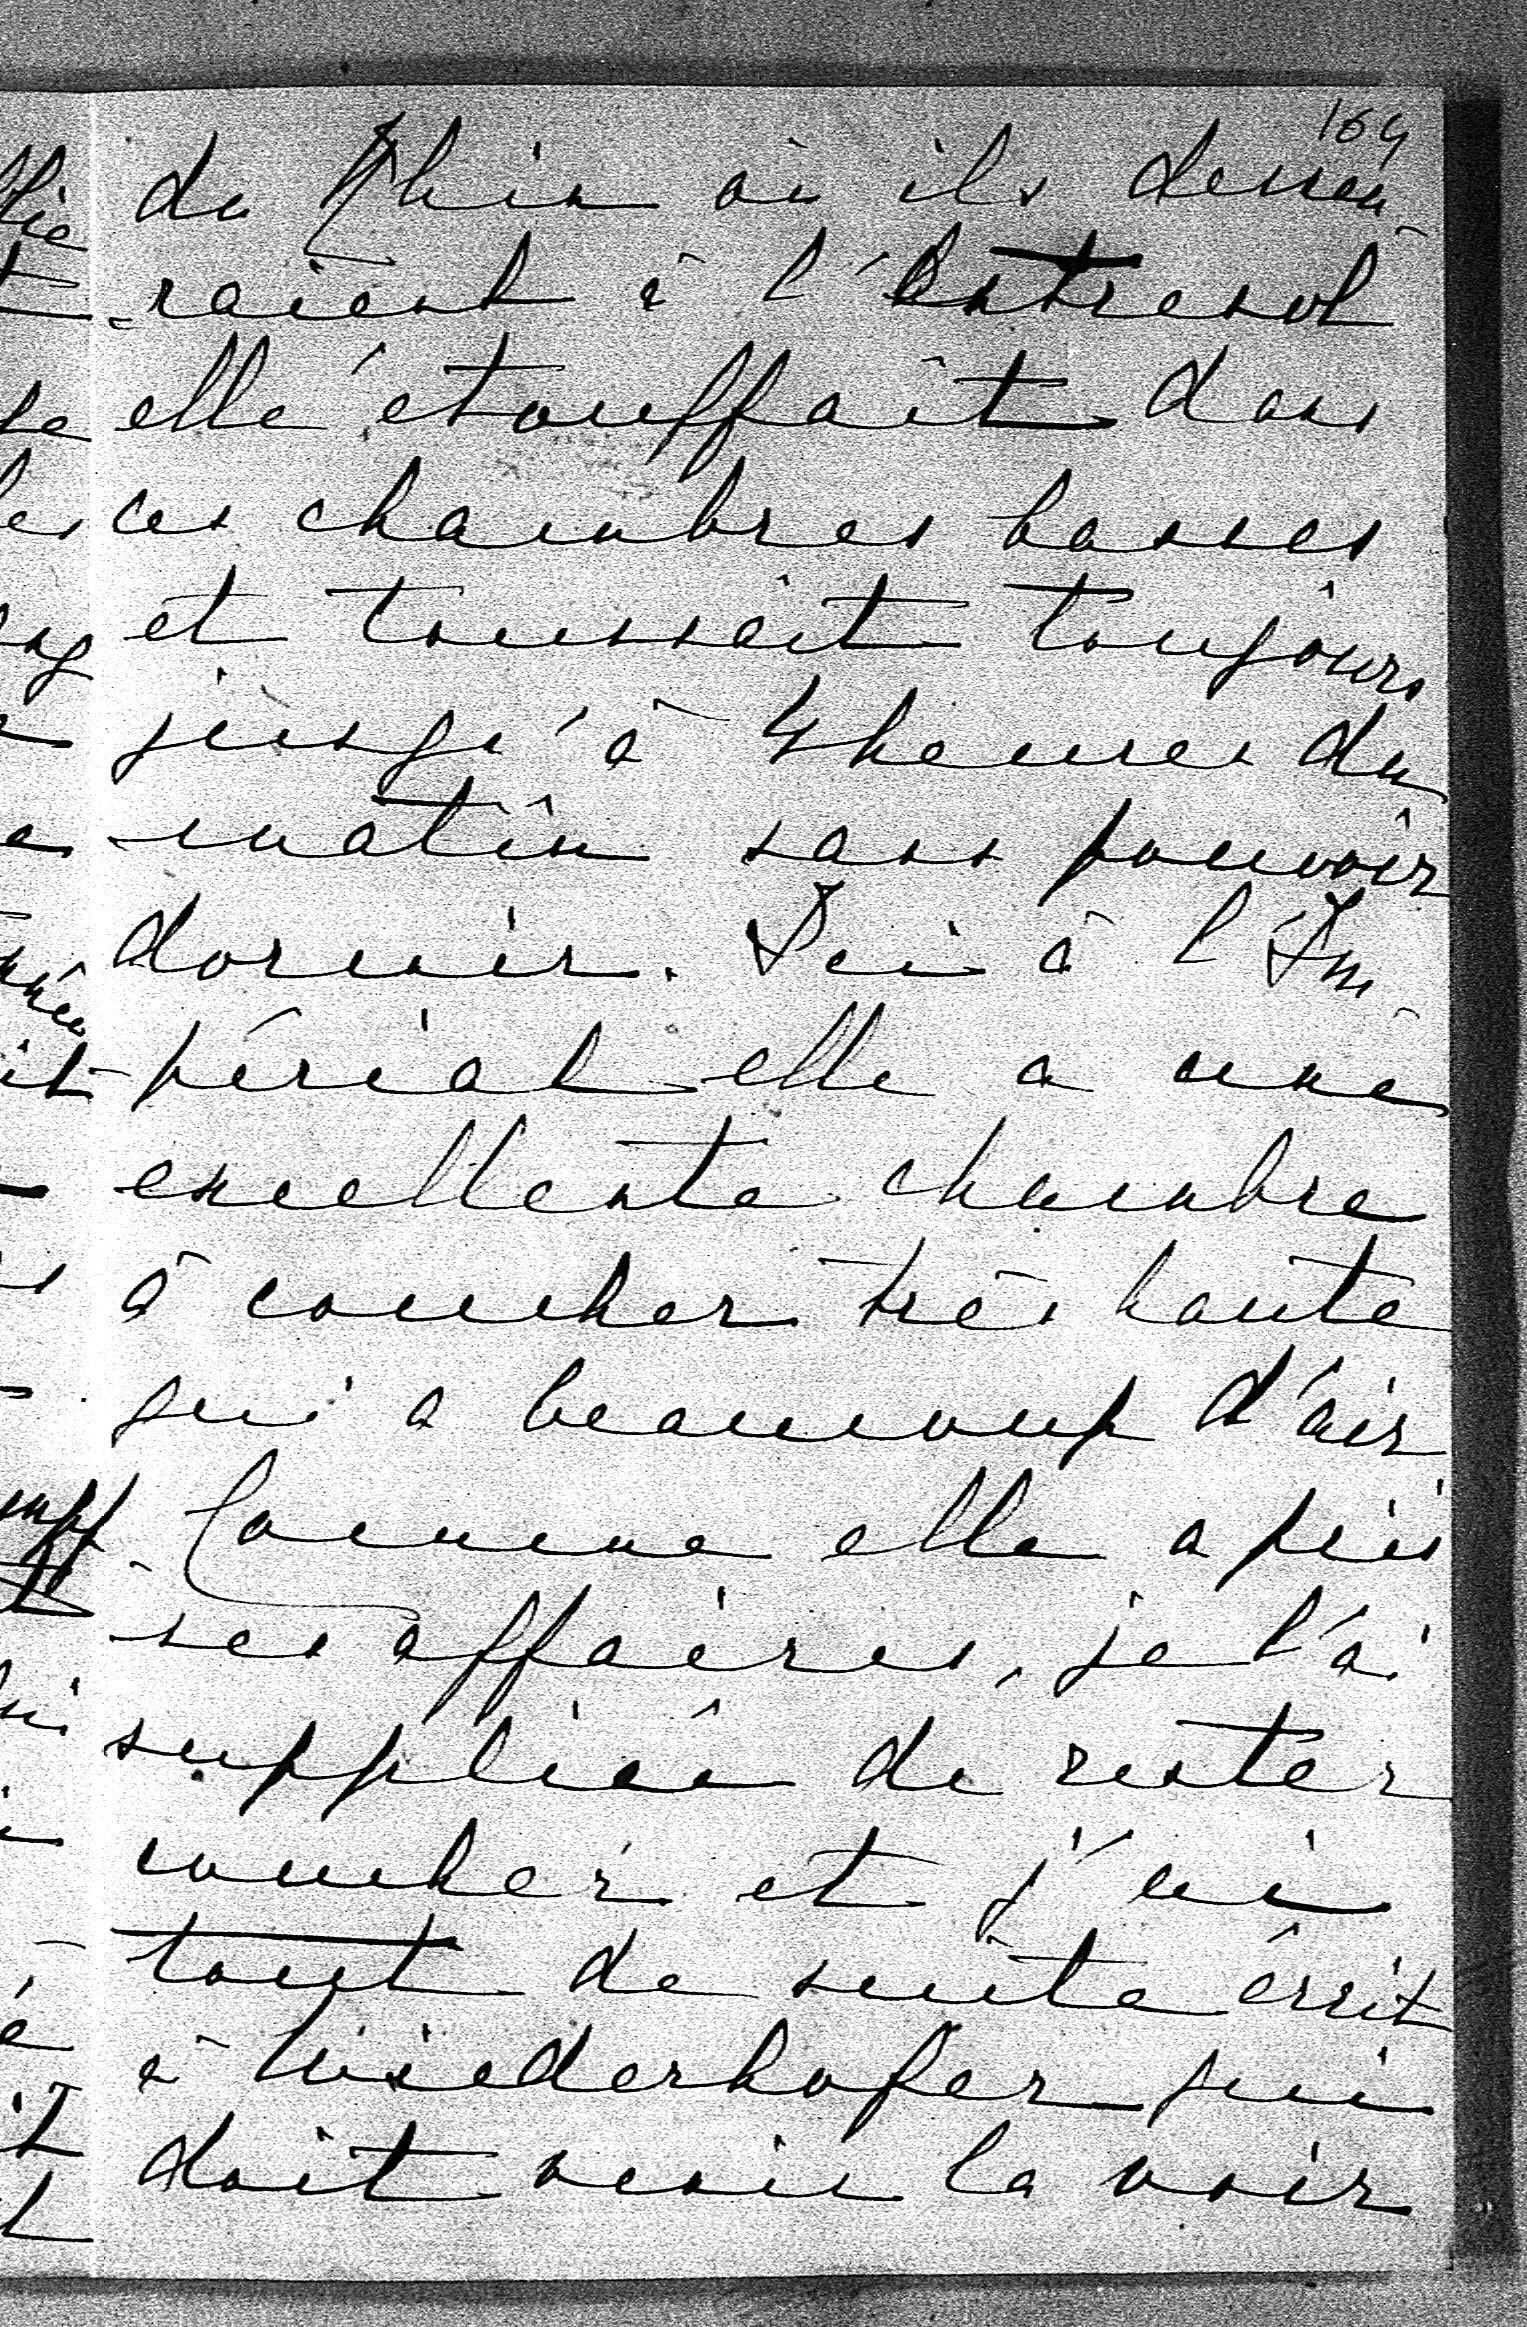 169
du Rhin où ils demeu
-raient à l'Entresol
elle étouffait dans
ces chambres basses
et toussait toujours
jusqu'à 4 heures du
matin sans pouvoir
dormir. Ici à l'Im-
périal elle a une
excellente chambre
à coucher très haute
qui a beaucoup d'air
Comme elle a pris
ses affaires, je l'ai
suppliée de rester
coucher et j'ai
tout de suite écrit
à Wiederhofer qui
doit venir la voir